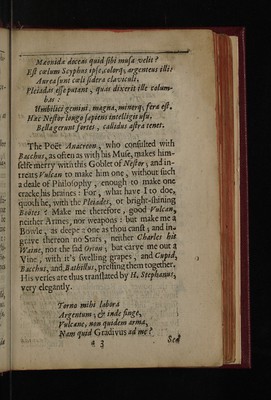 Mæonida doceas quid sibi musa velit?
Est cælum Scyphus ipse, colorq; argenteus illi:
Aurea sunt cæli sidera claviculi.
Pleiadas esse putant, quas dixerit ille colum-
bas:
Umbilici gemini, magna, minorq; fera est.
Hæc Nestor longo sapiens intelligit usu,
Bella gerunt fortes, callidus astra tenet.
The Poët Anacreon, who consulted with
Bacchus, as often as with his Muse, makes him-
selfe merry with this Goblet of Nestor; and in-
treats Vulcan to make him one, without such
a deale of Philosophy, enough to make one
cracke his braines: For, what have I to doe,
quoth he, with the Pleiades, or bright-shining
Boötes? Make me therefore, good Vulcan,
neither Armes, nor weapons: but make me a
Bowle, as deepe a one as thou canst; and in-
grave thereon no Stars, neither Charles his
Waine, nor the sad Orion; but carve me out a
Vine, with it's swelling grapes, and Cupid,
Bacchus, and Bathillus, pressing them together.
His verses are thus translated by H. Stephanus,
very elegantly.
Torno mihi labora
Argentum, & inde finge,
Vulcane, non quidem arma,
Nam quid Gradivus ad me?
a 3 Sed